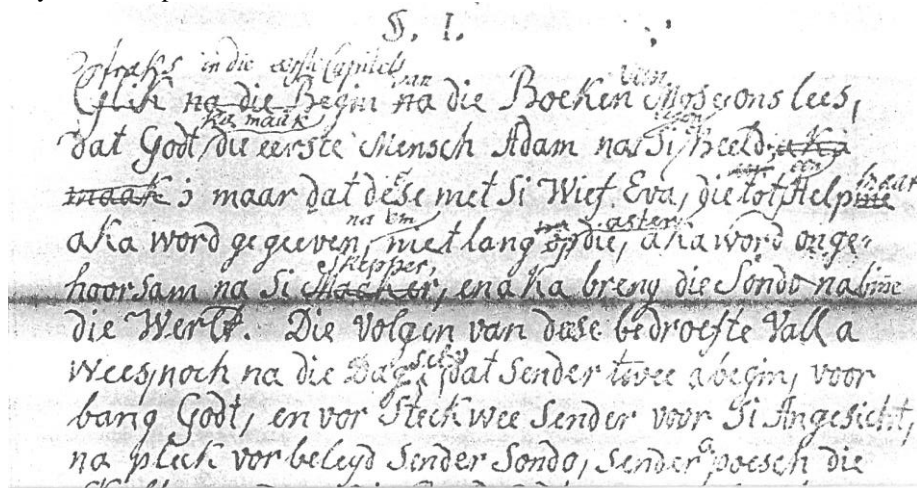 §. I.
straks in die eerste Capitels van van
Glik na die Begin na die Boeken Moses ons lees,
ka maak eigen
dat Godt die eerste Mensch Adam na Si Beeld aka
maak; maar dat dese met Si Wief Eva, die tot Helpme
een maar
aka word gegeeven, niet lang op die, aka word onge-
na em na aster
hoorsam na Si Macker, en aka breng die Sondo na binne
skepper,
die Werld. Die Volgen van dese bedroefte Vall a
Wees, noch na die Dag, dat Sender twee a begin, voor
bang Godt, en vor Steek wee Sender voor Si Angesicht,
na pleck vor beleyd Sender Sondo, Sender poesch die